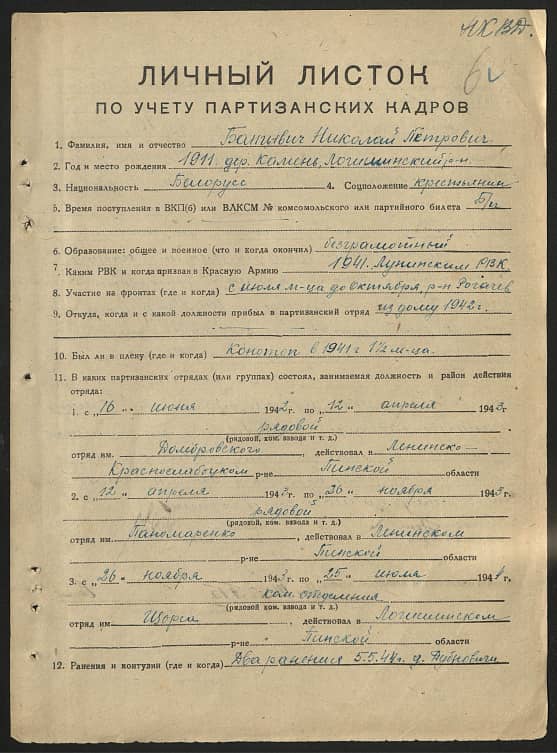 НКВД.
ЛИЧНЫЙ ЛИСТОК
ПО УЧЕТУ ПАРТИЗАНСКИХ КАДРОВ
1. Фамилия, имя и отчество Николай Петрович
2. Год и место рождения 1911. дер. Камень, Логишинский р-н.
3. Национальность Белорусс 4. Соцположение крестьянин
5. Время поступления в ВКП(б) или ВЛКСМ № комсомольского или партийного билета Б/п
6. Образование: общее и военное (что и когда окончил) безграмотный
7. Каким РВК и когда призван в Красную Армию 1941. Лунинским РВК.
8. Участие на фронтах (где и когда) с июля м-ца до октября, р-н Рогачев
9. Откуда, когда и с какой должности прибыл в партизанский отряд из дому 1942г.
10. Был ли в плену (где и когда) Конотоп в 1941 г 1½ м-ца.
11. В каких партизанских отрядах (или группах) состоял, занимаемая должность и район действия
отряда:
1. с „16 „ июня 1942 г. по „12 „ апреля 1943 г
рядовой
(рядовой, ком. взвода и т. д.)
отряд им. Домбровского, действовал в Ленинско-
Краснослабоцком р-не Пинской области
2. с „12 „ апреля 1943 г. по „26 „ ноября 1943 г.
рядовой
(рядовой, ком. взвода и т. д.)
отряд им. Пономаренко, действовал в Ленинском
р-не Пинской области
3. с „26 „ ноября 1943 г. по „25 „ июля 1944 г.
ком. отделения
(рядовой, ком. взвода и т. д.)
отряд им Щорса, действовал в Логишинском
р-не Пинской области
12. Ранения и контузии (где и когда) Два ранения 5.5.44г. д.